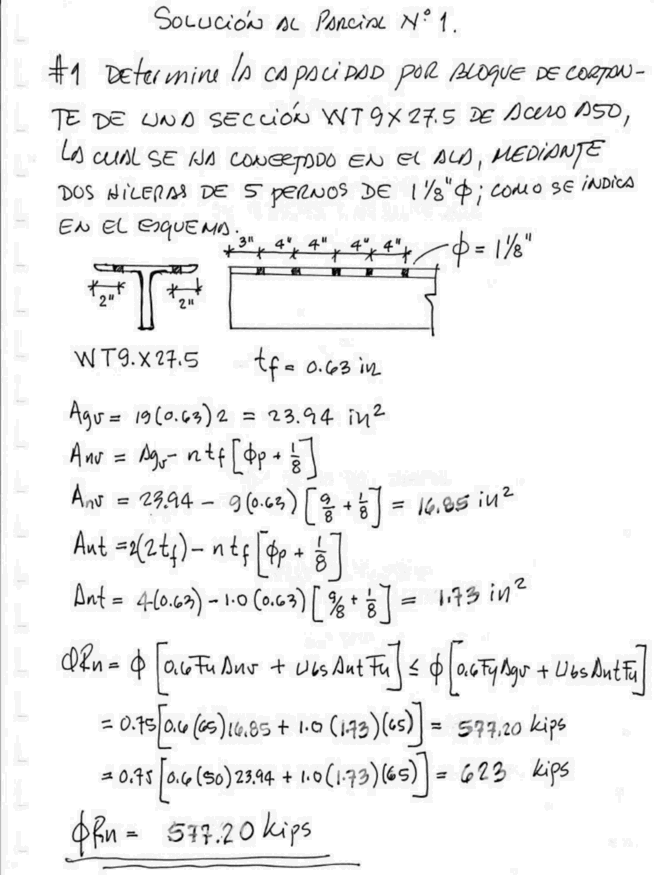 SOLUCIÓN AL PARCIAL N° 1.
#1 Determine la CAPACIDAD POR BLOQUE DE CORTAN-
TE DE UNA SECCIÓN WT9X27.5 DE ACERO A50,
LA CUAL SE HA CONECTADO EN EL ALA, MEDIANTE
DOS HILERAS DE 5 PERNOS DE 1 1/8"ϕ; COMO SE INDICA
EN EL ESQUEMA.
3" 4" 4" 4" 4"
ϕ = 1 1/8"
2" 2"
WT9.X27.5 tf = 0.63 in
Agv = 19(0.63)2 = 23.94 in²
Anv = Agv - n tf [ϕp + 1/8]
Anv = 23.94 - 9(0.63) [9/8 + 1/8] = 16.85 in²
Ant = 2(2tf) - n tf [ϕp + 1/8]
Ant = 4(0.63) - 1.0(0.63) [9/8 + 1/8] = 1.73 in²
ϕRn = ϕ [0.6 Fu Anv + Ubs Ant Fu] ≤ ϕ [0.6 Fy Agv + Ubs Ant Fu]
= 0.75 [0.6(65)16.85 + 1.0(1.73)(65)] = 577.20 kips
= 0.75 [0.6(50)23.94 + 1.0(1.73)(65)] = 623 kips
ϕRn = 577.20 kips